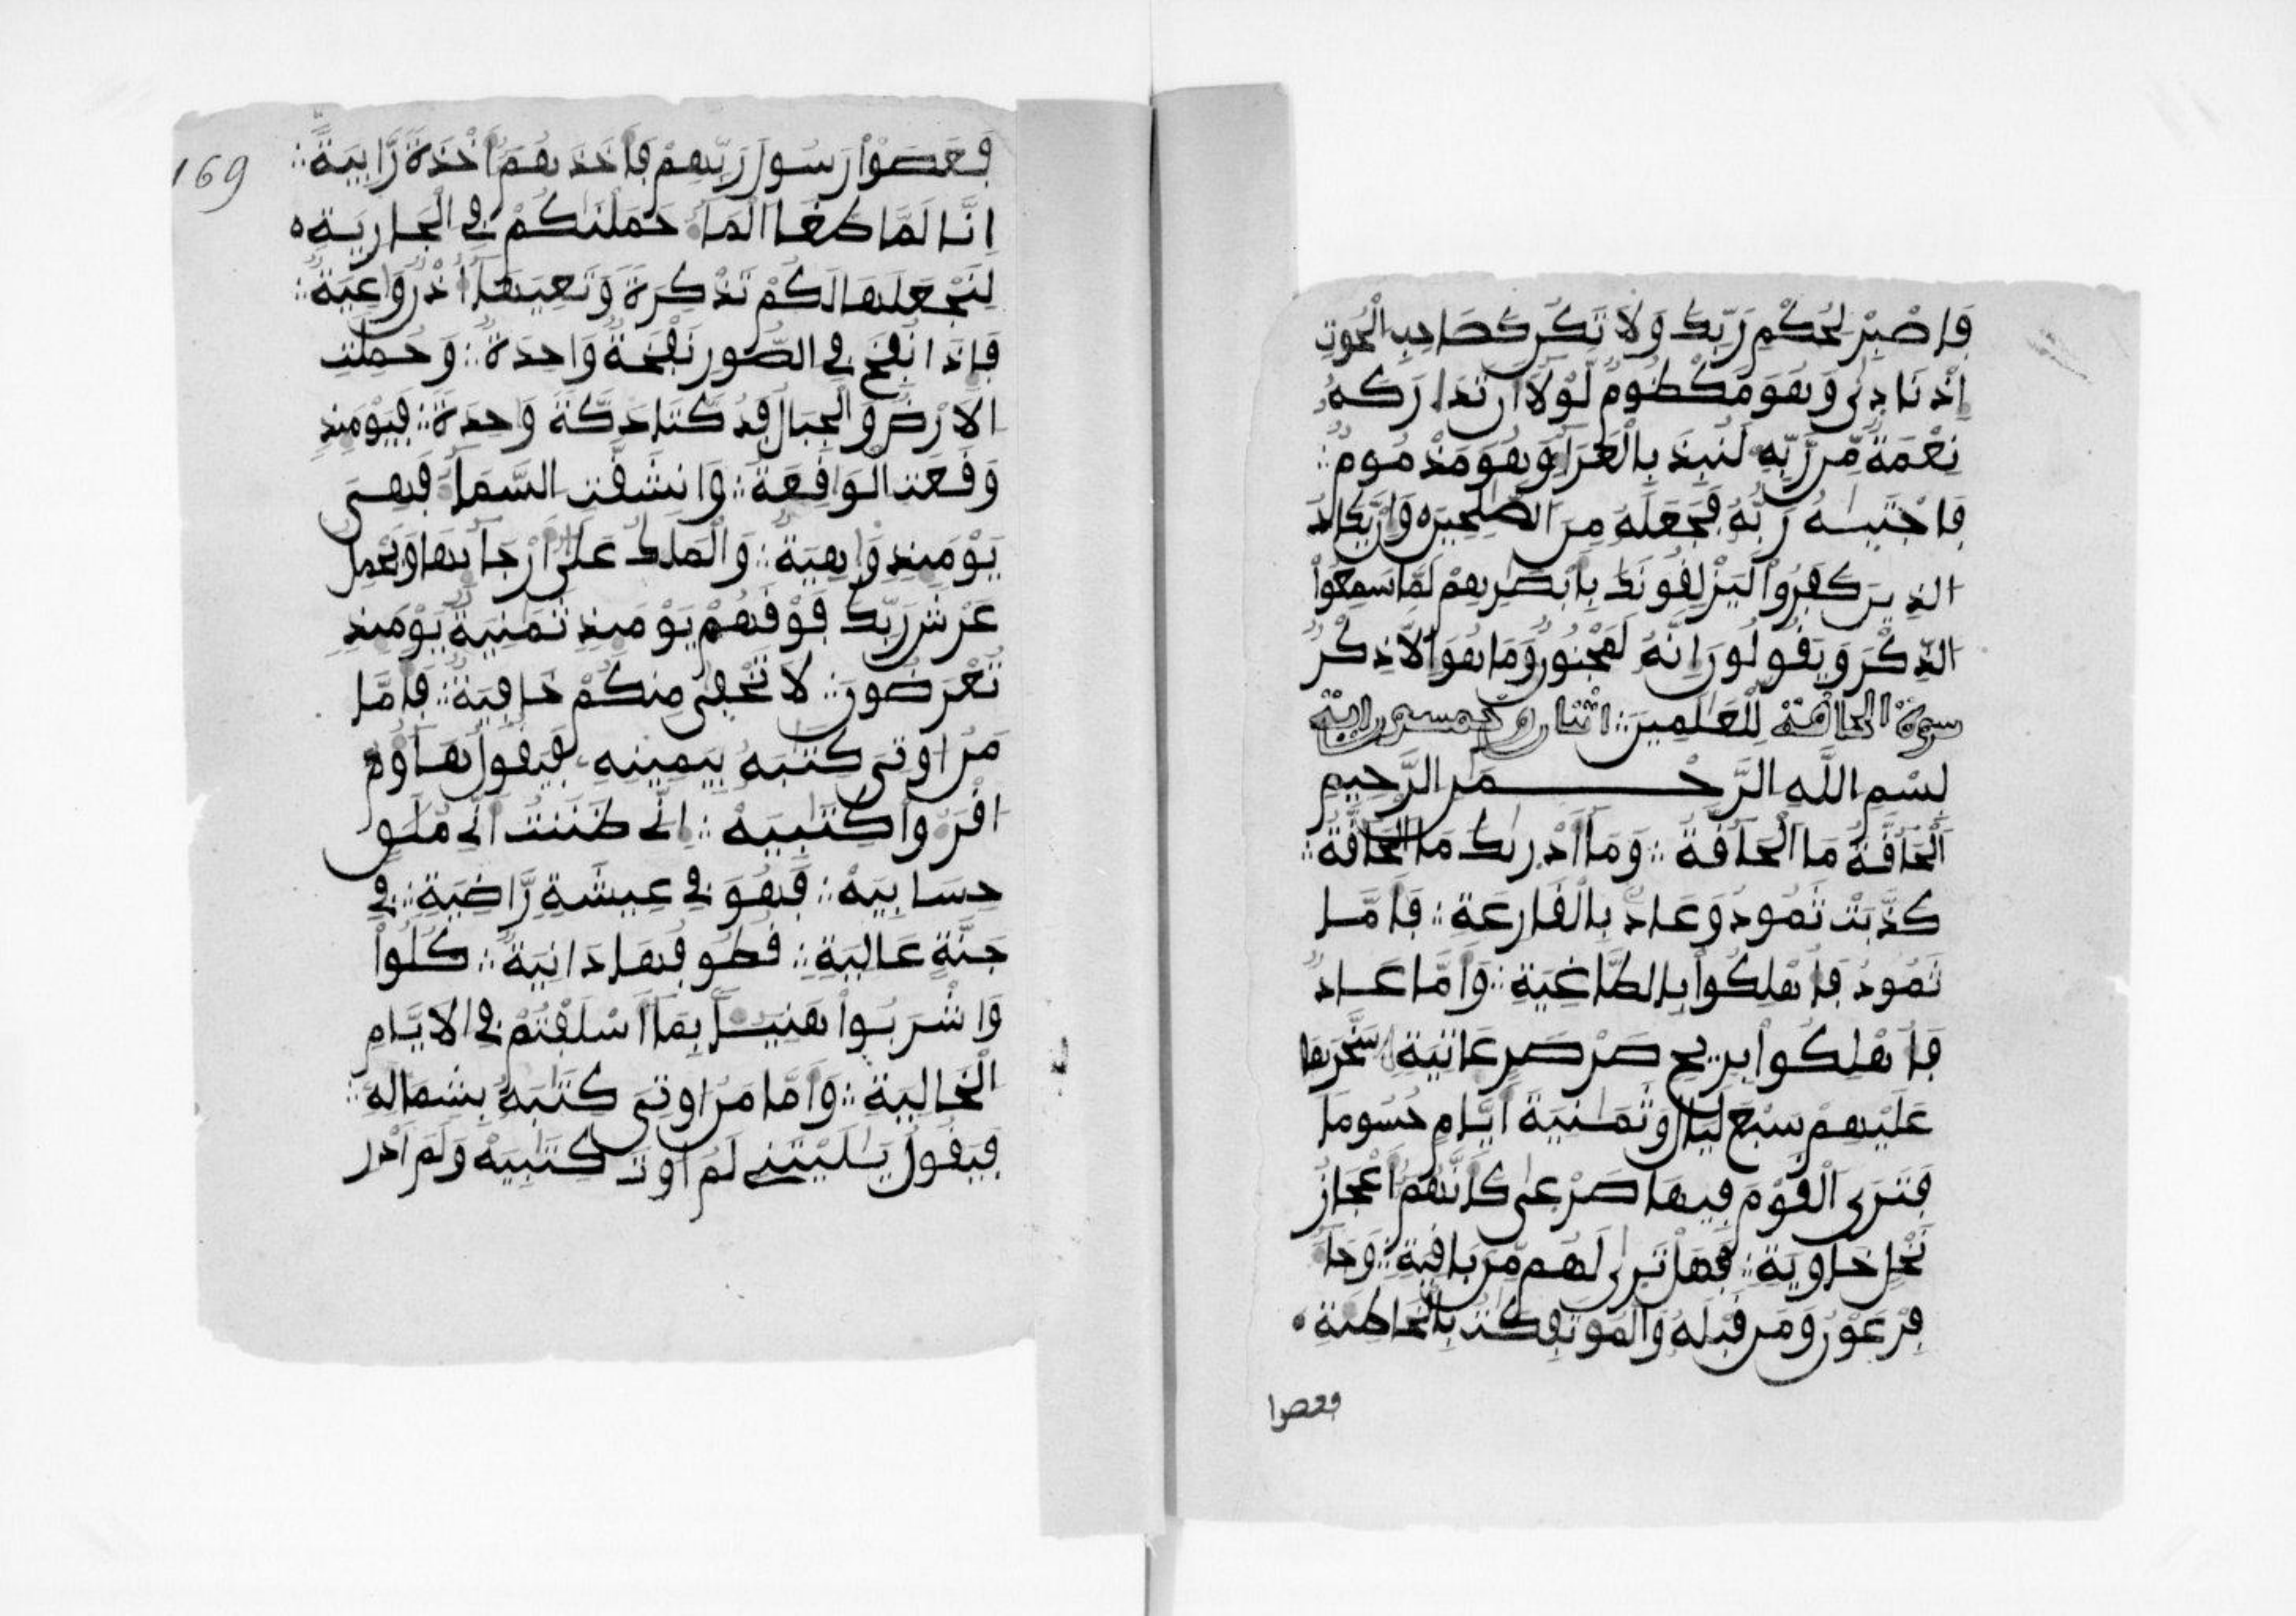 فَاصْبِرْ لِحُكْمِ رَبِّكَ وَلَا تَكُن كَصَاحِبِ الْحُوتِ
إِذْ نَادِىٰ وَهُوَ مَكْظُومٌ لَّوْلَا أَن تَدَارَكَهُ
نِعْمَةٌ مِّن رَّبِّهِ لَنُبِذَ بِالْعَرَا وَهُوَ مَذْمُومٌ
فَاجْتَبَيٰهُ رَبُّهُ فَجَعَلَهُ مِنَ الصَّٰلِحِينَ وَإِن يَّكَادُ
الذِينَ كَفَرُوا لَيَزْلِقُونَكَ بِأَبْصَٰرِهِمْ لَمَّا سَمِعُوا
الذِّكْرَ وَيَقُولُونَ إِنَّهُ لَمَجْنُونٌ وَمَا هُوَ إِلَّا ذِكْرٌ
سورة الحاقة لِّلْعَٰلَمِينَ اثنان وخمسون اية
بِسْمِ اللَّهِ الرَّحْمَنِ الرَّحِيمِ
اَلْحَاقَّةُ مَا الْحَاقَّةُ وَمَا أَدْرِيٰكَ مَا الْحَاقَّةُ
كَذَّبَتْ ثَمُودُ وَعَادٌ بِالْقَارِعَةِ فَأَمَّا
ثَمُودُ فَأُهْلِكُوا بِالطَّاغِيَةِ وَأَمَّا عَادٌ
فَأُهْلِكُوا بِرِيحٍ صَرْصَرٍ عَاتِيَةٍ سَخَّرَهَا
عَلَيْهِمْ سَبْعَ لَيَالٍ وَثَمَٰنِيَةَ أَيَّامٍ حُسُومًا
فَتَرَى الْقَوْمَ فِيهَا صَرْعِىٰ كَأَنَّهُمْ أَعْجَازُ
نَخْلٍ خَاوِيَةٍ فَهَلْ تَرِىٰ لَهُم مِّن بَاقِيَةٍ وَجَا
فِرْعَوْنُ وَمَن قَبْلَهُ وَالْمُوتَفِكَٰتُ بِالْخَاطِئَةِ
فعصوا
169
فَعَصَوْا رَسُولَ رَبِّهِمْ فَأَخَذَهُمْ أَخْذَةً رَّابِيَةً
إِنَّا لَمَّا طَغَا الْمَا حَمَلْنَٰكُمْ فِي الْجَارِيَةِ
لِنَجْعَلَهَا لَكُمْ تَذْكِرَةً وَتَعِيَهَا أُذْنٌ وَٰعِيَةٌ
فَإِذَا نُفِخَ فِي الصُّورِ نَفْخَةٌ وَاحِدَةٌ وَحُمِلَتِ
الْأَرْضُ وَالْجِبَالُ فَدُكَّتَا دَكَّةً وَٰحِدَةً فَيَوْمَئِذٍ
وَقَعَتِ الْوَاقِعَةُ وَانشَقَّتِ السَّمَا فَهِيَ
يَوْمَئِذٍ وَاهِيَةٌ وَالْمَلَكُ عَلَىٰ أَرْجَائِهَا وَيَحْمِلُ
عَرْشَ رَبِّكَ فَوْقَهُمْ يَوْمَئِذٍ ثَمَٰنِيَةٌ يَوْمَئِذٍ
تُعْرَضُونَ لَا تَخْفِىٰ مِنكُمْ خَافِيَةٌ فَأَمَّا
مَنْ أُوتِيَ كِتَٰبَهُ بِيَمِينِهِ فَيَقُولُ هَاؤُمُ
اقْرَءُوا كِتَٰبِيَهْ إِنِّي ظَنَنتُ أَنِّي مُلَٰقٍ
حِسَابِيَهْ فَهُوَ فِي عِيشَةٍ رَّاضِيَةٍ فِي
جَنَّةٍ عَالِيَةٍ قُطُوفُهَا دَانِيَةٌ كُلُوا
وَاشْرَبُوا هَنِيـًٔا بِمَا أَسْلَفْتُمْ فِي الْأَيَّامِ
الْخَالِيَةِ وَأَمَّا مَنْ أُوتِيَ كِتَٰبَهُ بِشِمَالِهِ
فَيَقُولُ يَٰلَيْتَنِي لَمْ أُوتَ كِتَٰبِيَهْ وَلَمْ أَدْرِ